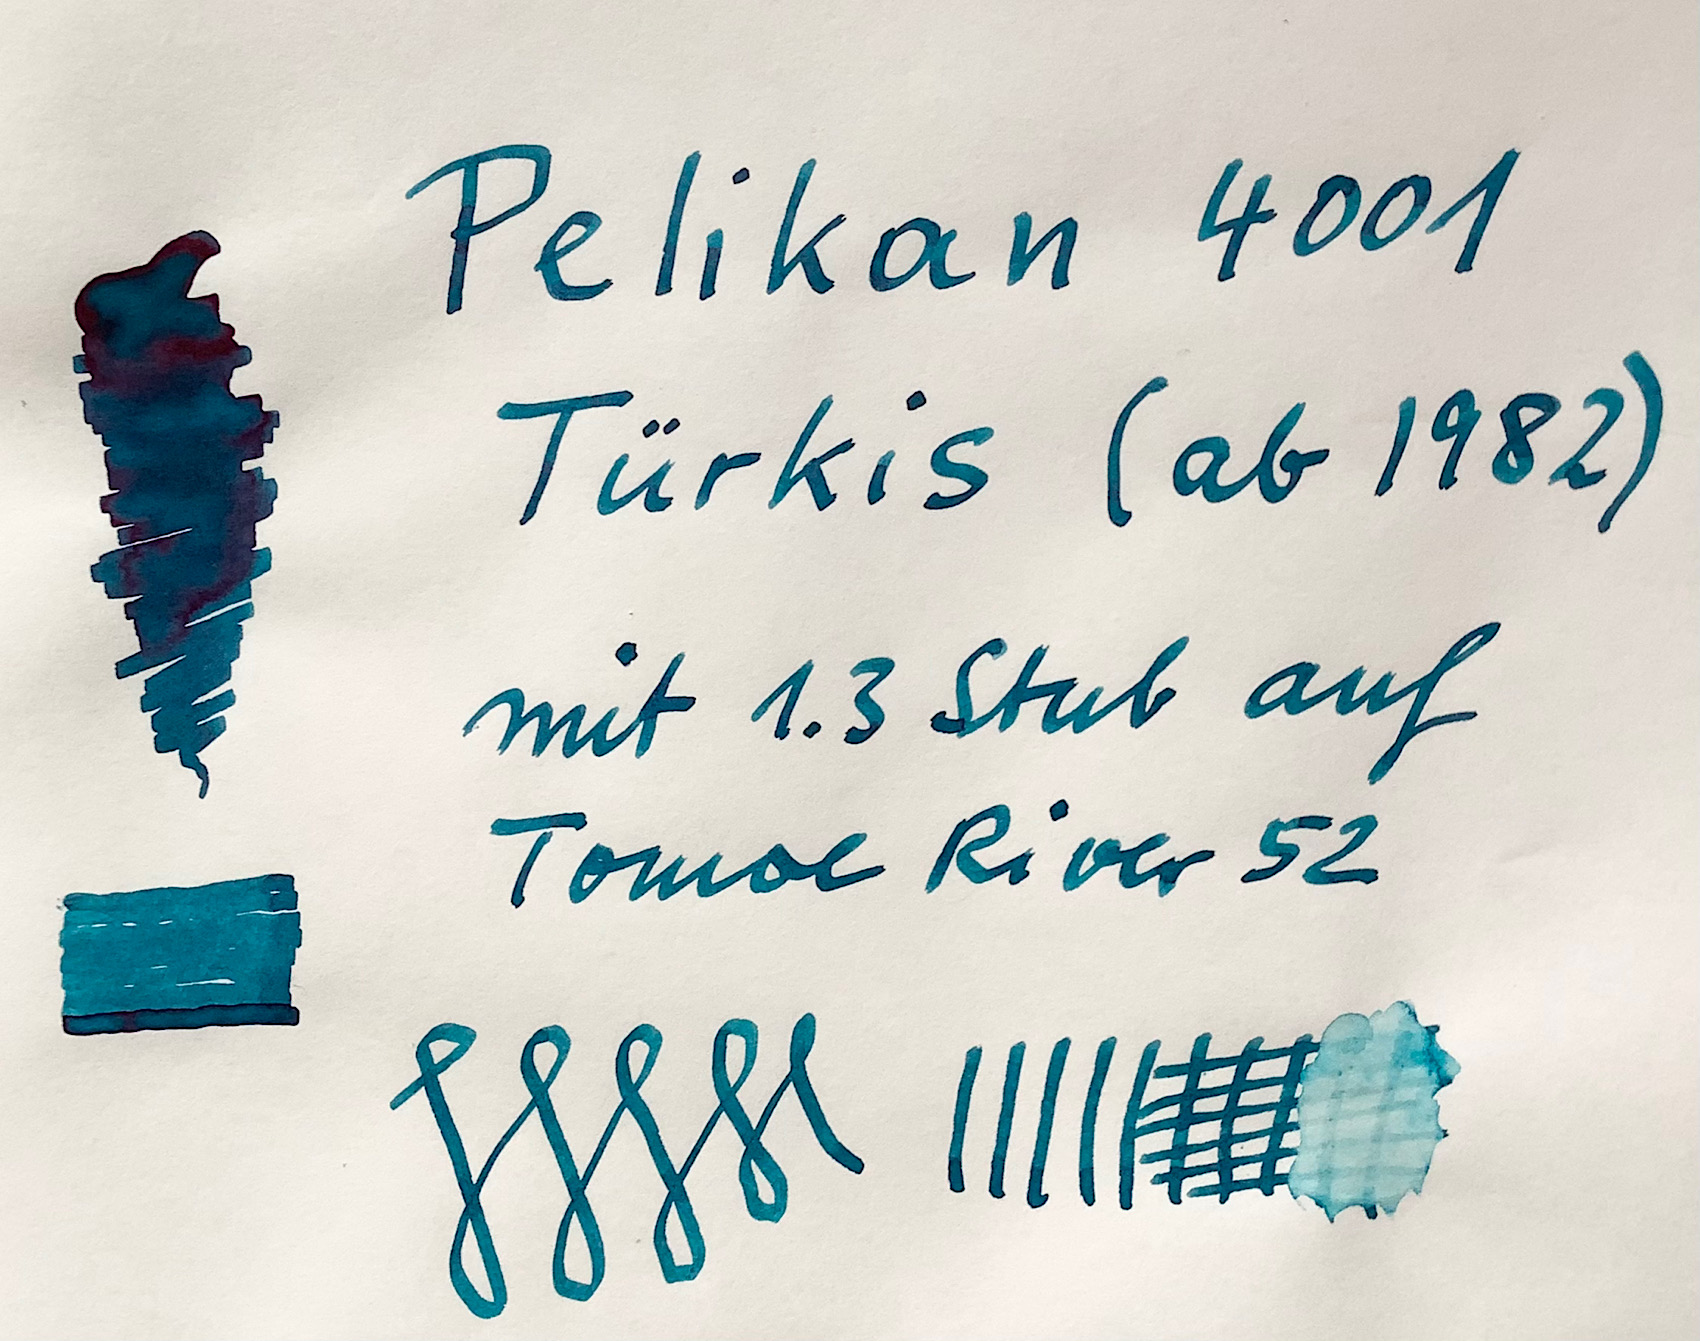 Pelikan 4001
Türkis (ab 1982)
mit 1.3 Stub auf
Tomoe River 52